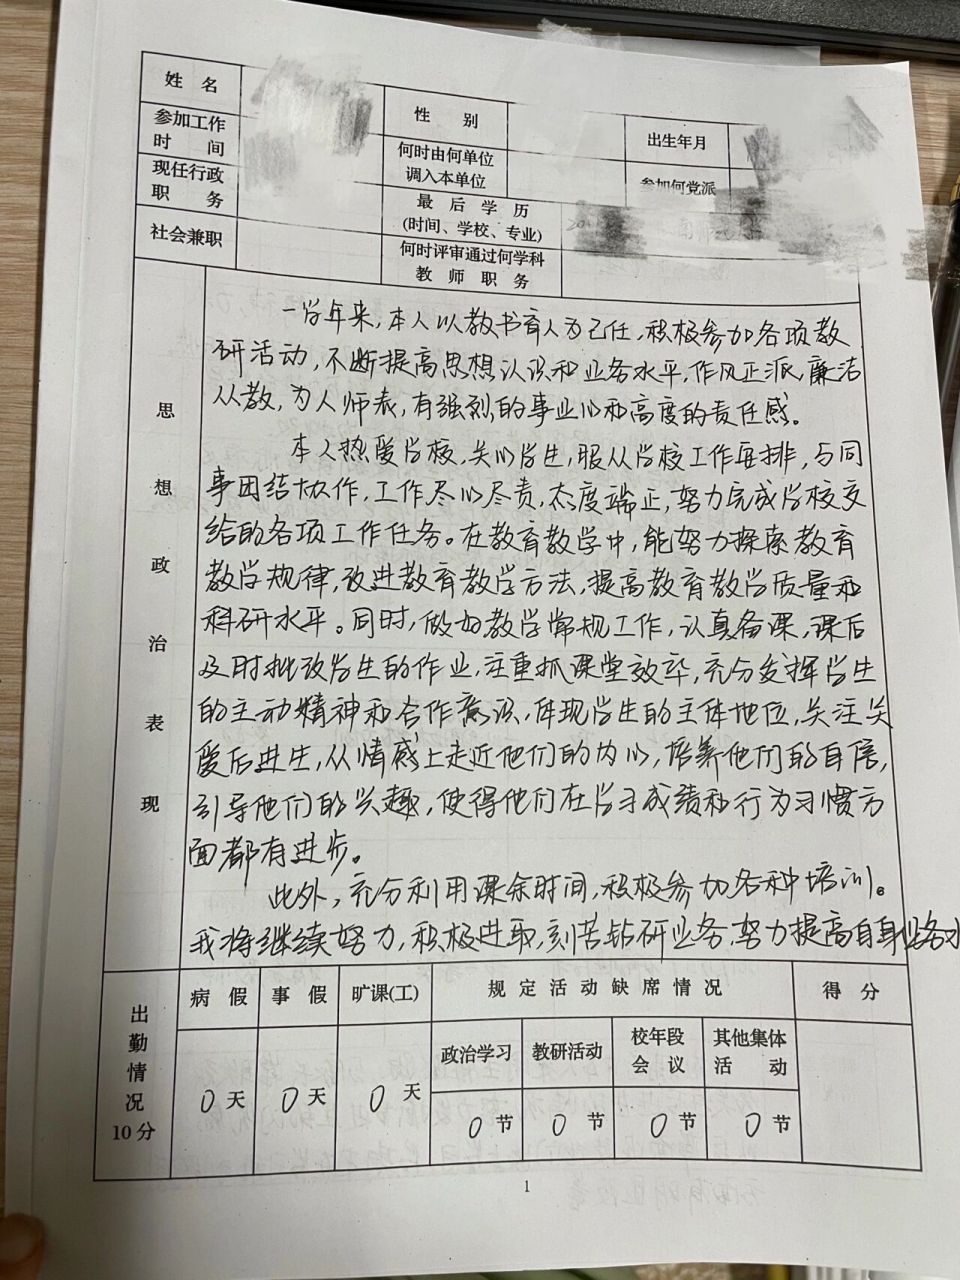 姓 名
性 别
出生年月
参加工作
时 间
何时由何单位
调入本单位
参加何党派
现任行政
职 务
最 后 学 历
(时间、学校、专业)
20
社会兼职
何时评审通过何学科
教 师 职 务
思想政治表现
一学年来,本人以教书育人为己任,积极参加各项教
研活动,不断提高思想认识和业务水平,作风正派,廉洁
从教,为人师表,有强烈的事业心和高度的责任感。
本人热爱学校,关心学生,服从学校工作安排,与同
事团结协作,工作尽心尽责,态度端正,努力完成学校交
给的各项工作任务。在教育教学中,能努力探索教育
教学规律,改进教育教学方法,提高教育教学质量和
科研水平。同时,做好教学常规工作,认真备课,课后
及时批改学生的作业,注重抓课堂效率,充分发挥学生
的主动精神和合作意识,体现学生的主体地位,关注关
爱后进生,从情感上走近他们的内心,培养他们的自信,
引导他们的兴趣,使得他们在学习成绩和行为习惯方
面都有进步。
此外,充分利用课余时间,积极参加各种培训。
我将继续努力,积极进取,刻苦钻研业务,努力提高自身业务水
出勤情况
10分
病 假
事 假
旷课(工)
规 定 活 动 缺 席 情 况
得 分
政治学习
教研活动
校年段
会 议
其他集体
活 动
0 天
0 天
0 天
0 节
0 节
0 节
0 节
1